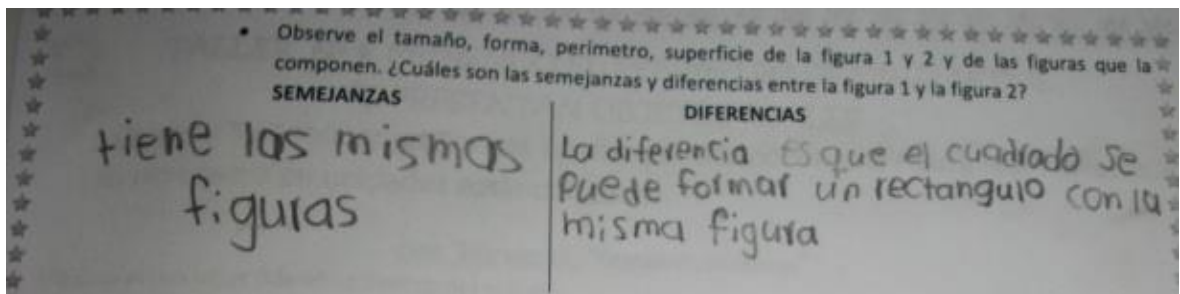 • Observe el tamaño, forma, perímetro, superficie de la figura 1 y 2 y de las figuras que la
componen. ¿Cuáles son las semejanzas y diferencias entre la figura 1 y la figura 2?
SEMEJANZAS
tiene las mismas
figuras
DIFERENCIAS
La diferencia es que el cuadrado se
puede formar un rectangulo con la
misma figura